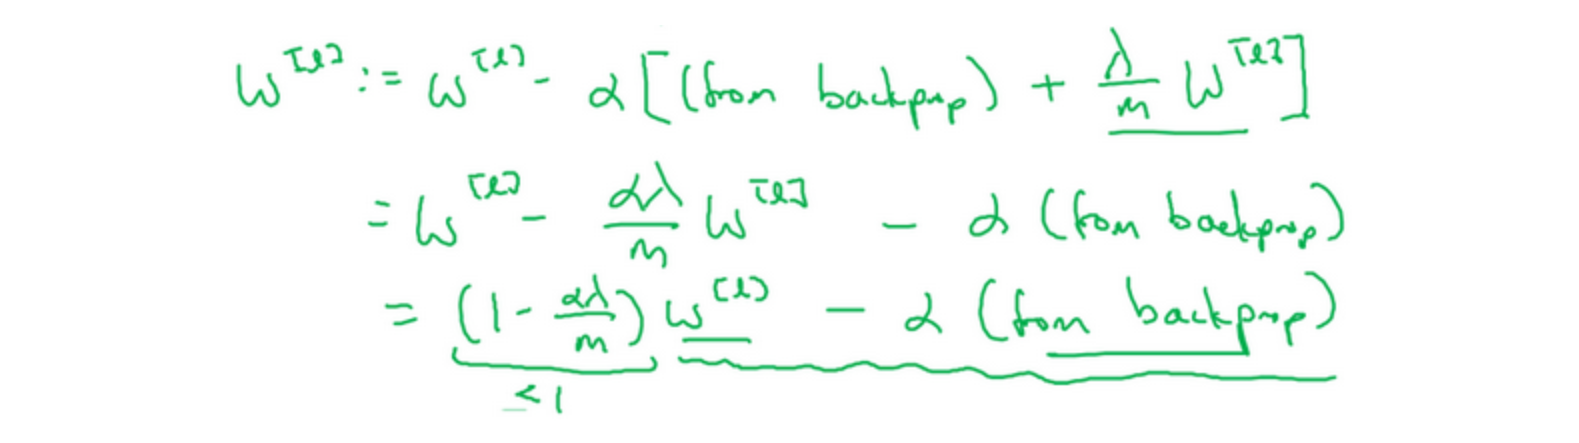 W^[l] := W^[l] - α[(from backprop) + λ/m W^[l]]
= W^[l] - αλ/m W^[l] - α (from backprop)
= (1 - αλ/m) W^[l] - α (from backprop)
< 1